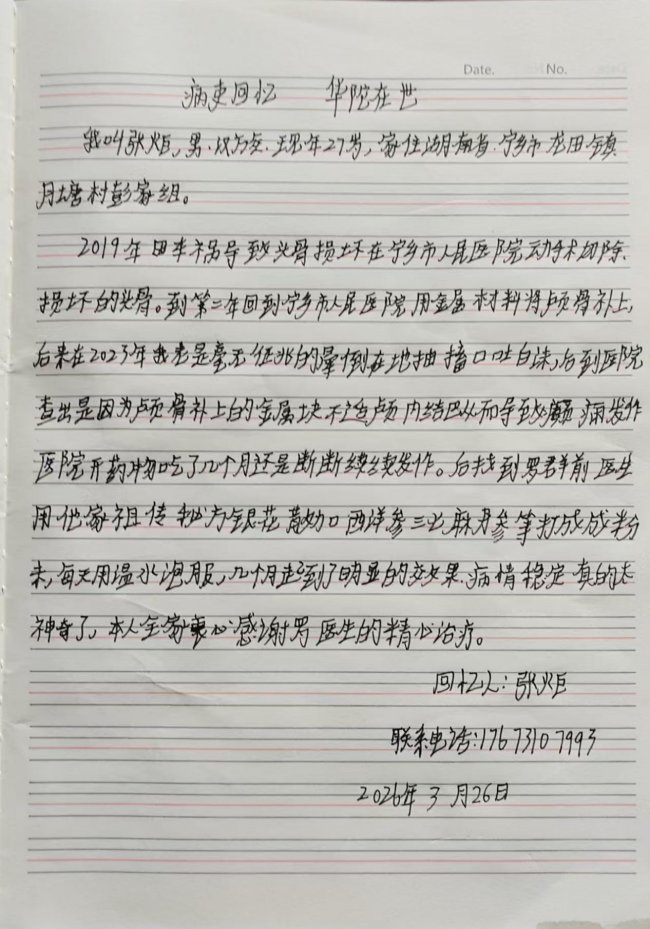 Date. No.
病吏回忆 华陀在世
我叫张炬,男,汉族,现年27岁,家住湖南省宁乡市龙田镇
月塘村彭家组。
2019年因车祸导致头骨损坏在宁乡市人民医院动手术切除
损坏的头骨。到第二年回到宁乡市人民医院用金属材料将颅骨补上,
后来在2023年我老是毫无征兆的晕倒在地抽搐口吐白沫,后到医院
查出是因为颅骨补上的金属块不适颅内结巴从而导致癫痫病发作
医院开药物吃了几个月还是断断续续发作。后找到罗君前医生
用他家祖传秘方银花 西洋参三七 丹参等打成成粉
末,每天用温水泡服,几个月起到了明显的效果,病情稳定真的太
神奇了,本人全家衷心感谢罗医生的精心治疗。
回忆人:张炬
联系电话:17673107993
2026年3月26日